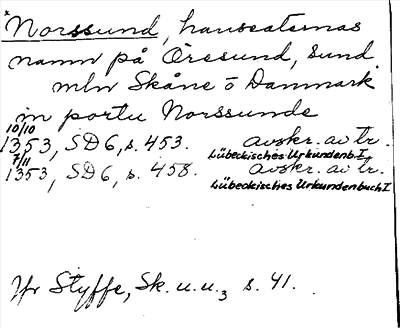 * Norssund, hanseaternas
namn på Öresund, sund
mln Skåne o Danmark.
in portu Norssunde
10/10
1353, SD 6, s. 453. avskr. av tr.
Lübeckisches Urkundenb. I
7/11
1353, SD 6, s. 458. avskr. av tr.
Lübeckisches Urkundenbuch I
Jfr Styffe, Sk. u. u.3 s. 41.